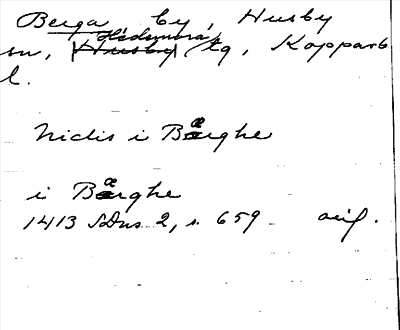 Berga by, Husby
sn, Hedemora tg, Kopparb
l.
Niclis i Bærghe
i Bærghe
1413 SDns 2, s. 659 orig.